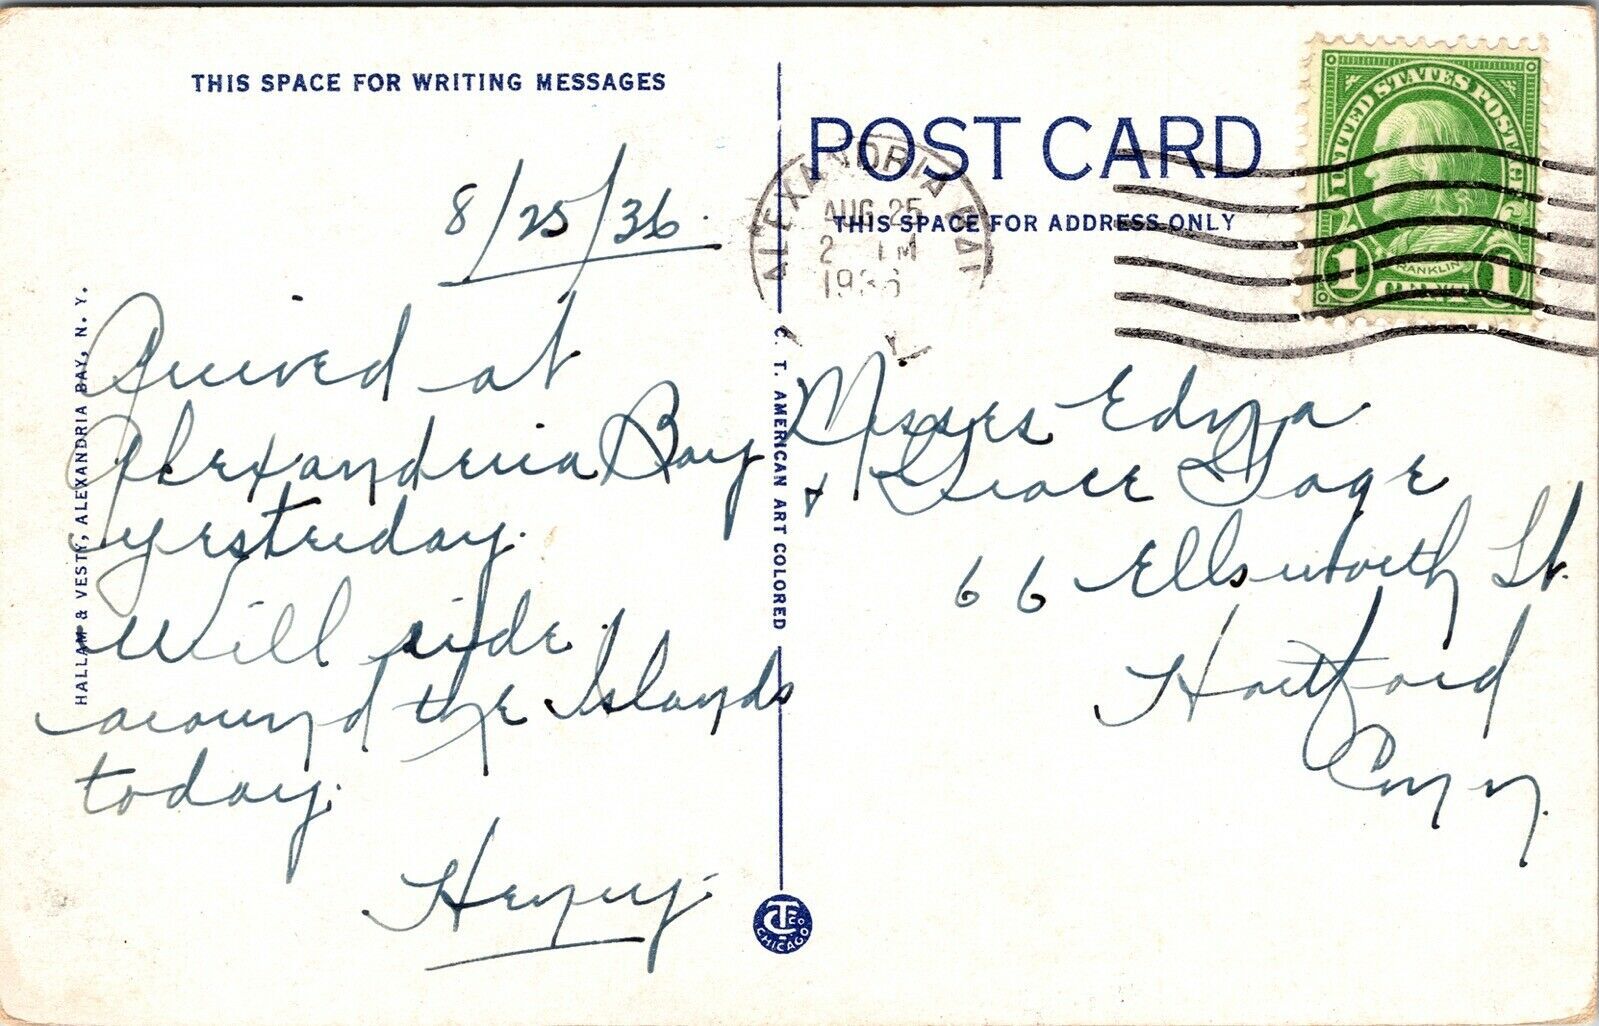 THIS SPACE FOR WRITING MESSAGES
8/25/36.
Arrived at
Alexandria Bay
yesterday.
Will ride
around the Islands
today.
Henry.
HALLAM & VESTY, ALEXANDRIA BAY, N. Y.
C. T. AMERICAN ART COLORED
CT Co
CHICAGO
POST CARD
THIS SPACE FOR ADDRESS ONLY
ALEXANDRIA BAY
AUG 25
2 PM
1936
UNITED STATES POSTAGE
FRANKLIN
1 CENT 1
Misses Edna
& Grace Gage
66 Ellsworth St.
Hartford
Conn.